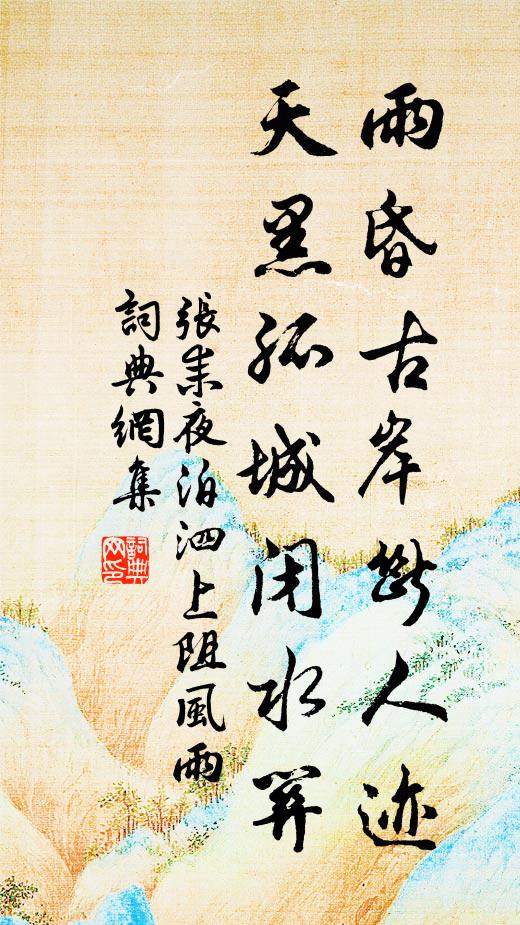 雨昏古岸斷人迹
天黑孤城閉水關
張耒夜泊泗上阻風雨
詞典網集
詞典网印